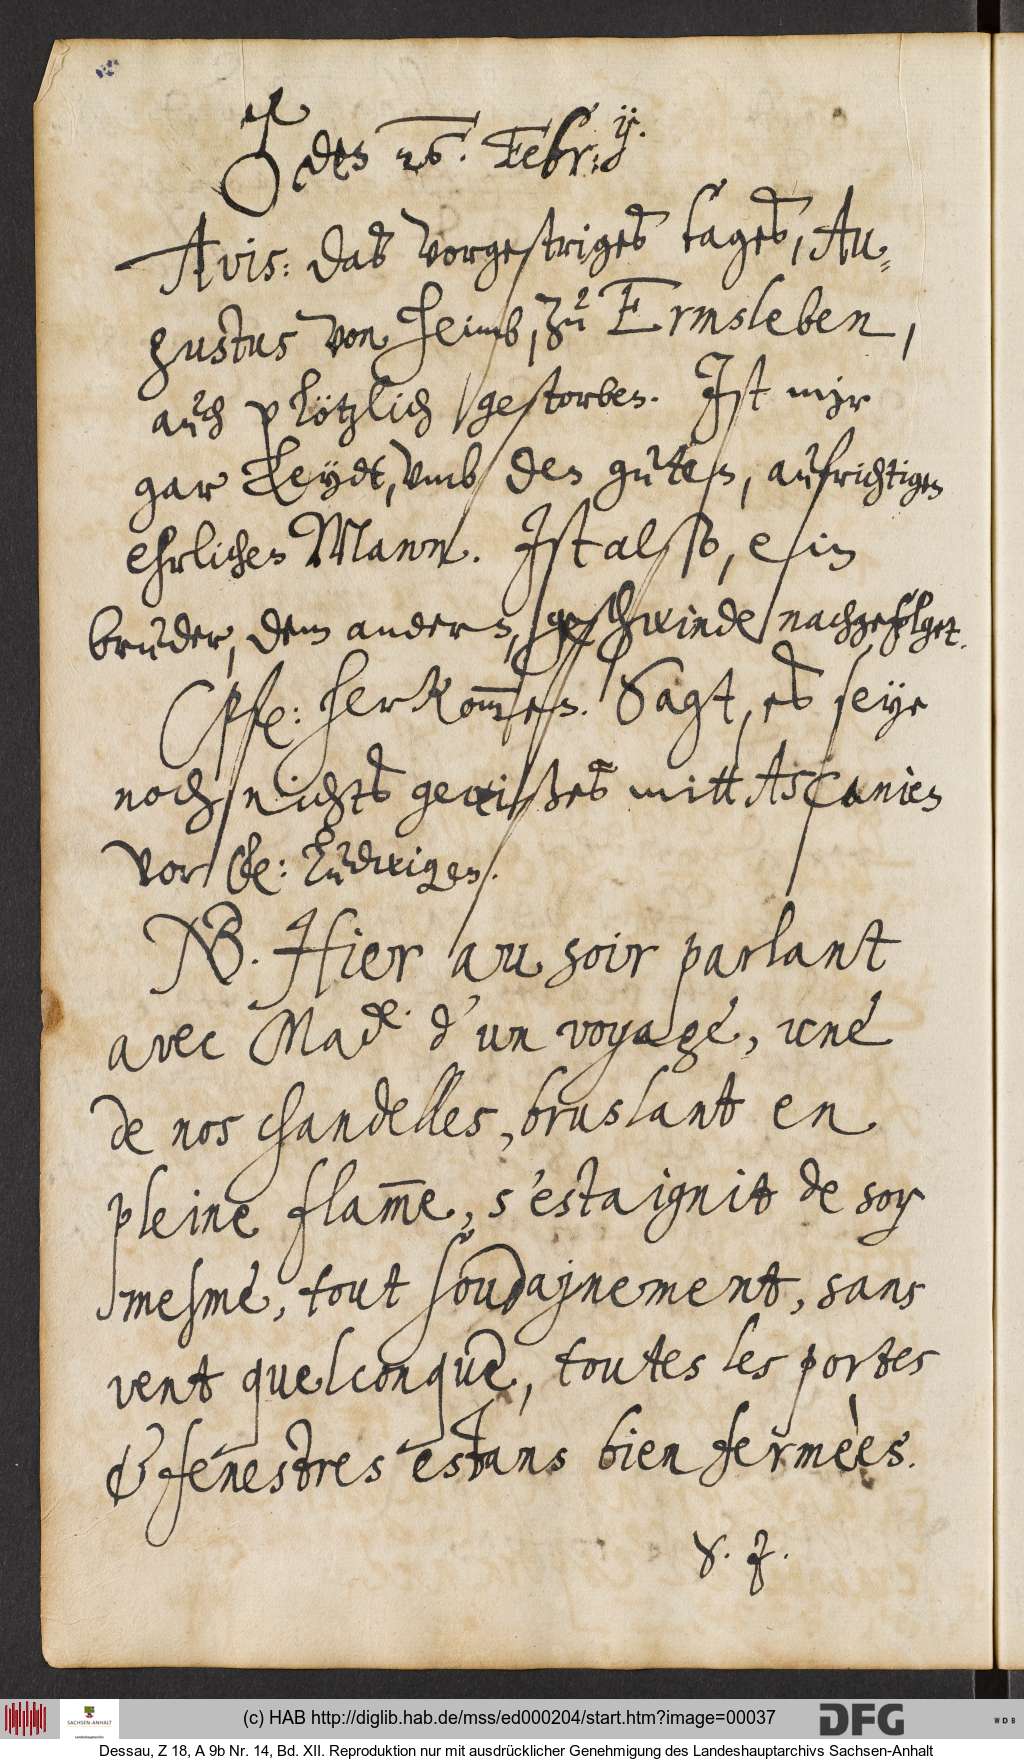 ♂ den 26. Febr:ij.
Avis: daß vorgestriges tages, Au⸗
gustus von Heimb, zu Ermsleben,
auch plötzlich gestorben. Ist mir
gar Leydt, vmb den guten, aufrichtigen
ehrlichen Mann. Ist also, ein
bruder, dem andern, geschwinde nachgefolget.
Pfe: herkom̅en. Sagt, es seye
noch nichts gewißes mitt Ascanien
vor Ludwigen.
NB. Hier au soir parlant
avec Made. d'un voyage, une
de nos chandelles, bruslant en
pleine flam̅e, s'estaignit de soy
mesme, tout soudajnement, sans
vent quelconque, toutes les portes
& fenestres estans bien fermèes.
(c) HAB http://diglib.hab.de/mss/ed000204/start.htm?image=00037
SACHSEN-ANHALT
DFG
WDB
Dessau, Z 18, A 9b Nr. 14, Bd. XII. Reproduktion nur mit ausdrücklicher Genehmigung des Landeshauptarchivs Sachsen-Anhalt